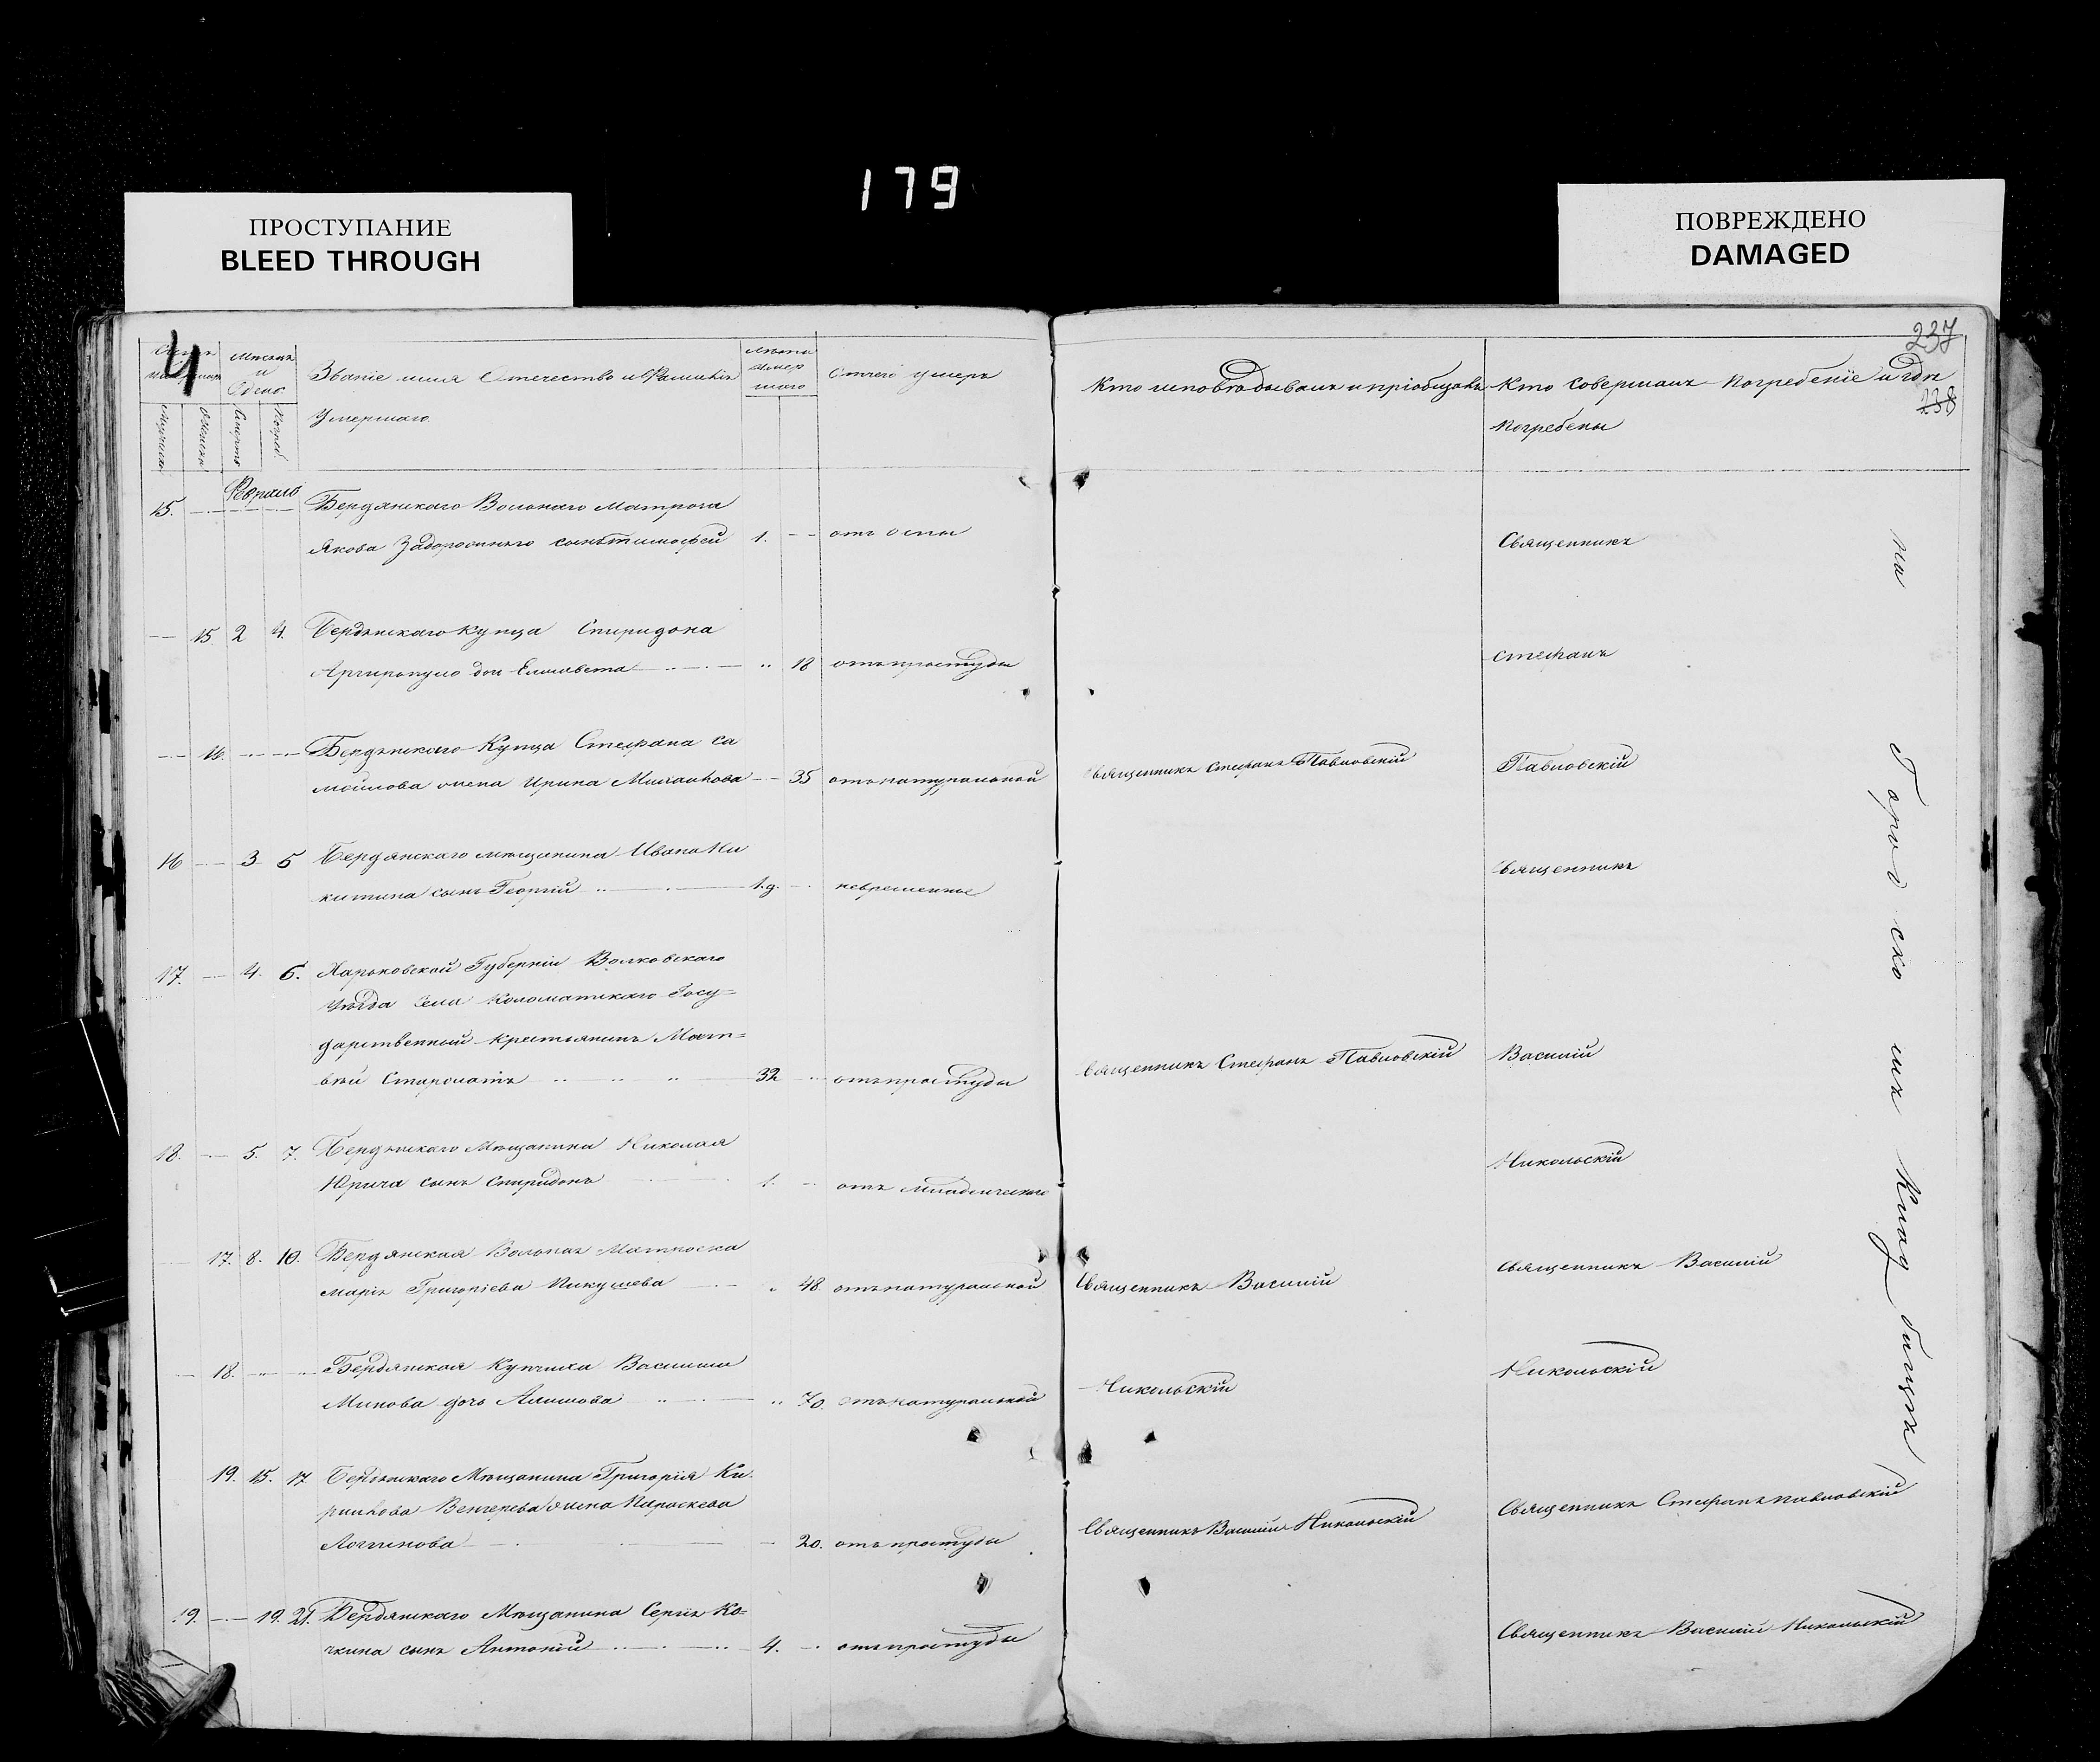 179
ПРОСТУПАНИЕ
BLEED THROUGH
ПОВРЕЖДЕНО
DAMAGED
4
237
238
Мѣсяцъ и
Званіе имя Отечество и Фамилія
Умершаго.
Лѣта умер шаго
Отчего умеръ
Кто исповѣдывалъ и пріобщалъ
Кто совершалъ погребеніе и гдѣ
погребены
Февраль
15. Бердянскаго Вольнаго Матроса
Якова сынъ Тимофей 1. отъ оспы
Священникъ
15 2 4. Бердянскаго Купца Спиридона
Аргиропуло дочь Елисавета 18 отъ простуды
Стефанъ
16. Бердянскаго Купца Стефана Са
мойлова жена Ирина Михайлова 35 отъ натуральной
Священникъ Стефанъ Павловскій
Павловскій
16 3 5 Бердянскаго мѣщанина Ивана Ни
китина сынъ Георгій 1.д. невременно
Священникъ
17. 4. 6. Харьковской Губерніи Волковскаго
Уѣзда Села Коломатскаго Госу=
дарственный крестьянинъ Мат=
вѣй 32 отъ простуды
Священникъ Стефанъ Павловскій
Василій
18. 5. 7. Бердянскаго Мѣщанина Николая
Юрича сынъ Спиридонъ 1. отъ младенческаго
Никольскій
17. 8. 10. Бердянская Вольная Матроска
Марія Григоріева 48. отъ натуральной
Священникъ Василій
Священникъ Василій
18. Бердянская Купчиха Василиса
Минова дочь 70. отъ натуральной
Никольскій
Никольскій
19. 15. 17 Бердянскаго Мѣщанина Григорія Ки
рилова Венгерева жена Параскева
Логгинова 20. отъ простуды
Священникъ Василій Никольскій
Священникъ Стефанъ Павловскій
19. 19. 21. Бердянскаго Мѣщанина Сергія Ко=
чкина сынъ Антоній 4. отъ простуды
Священникъ Василій Никольскій
на Городскомъ Кладбищѣ